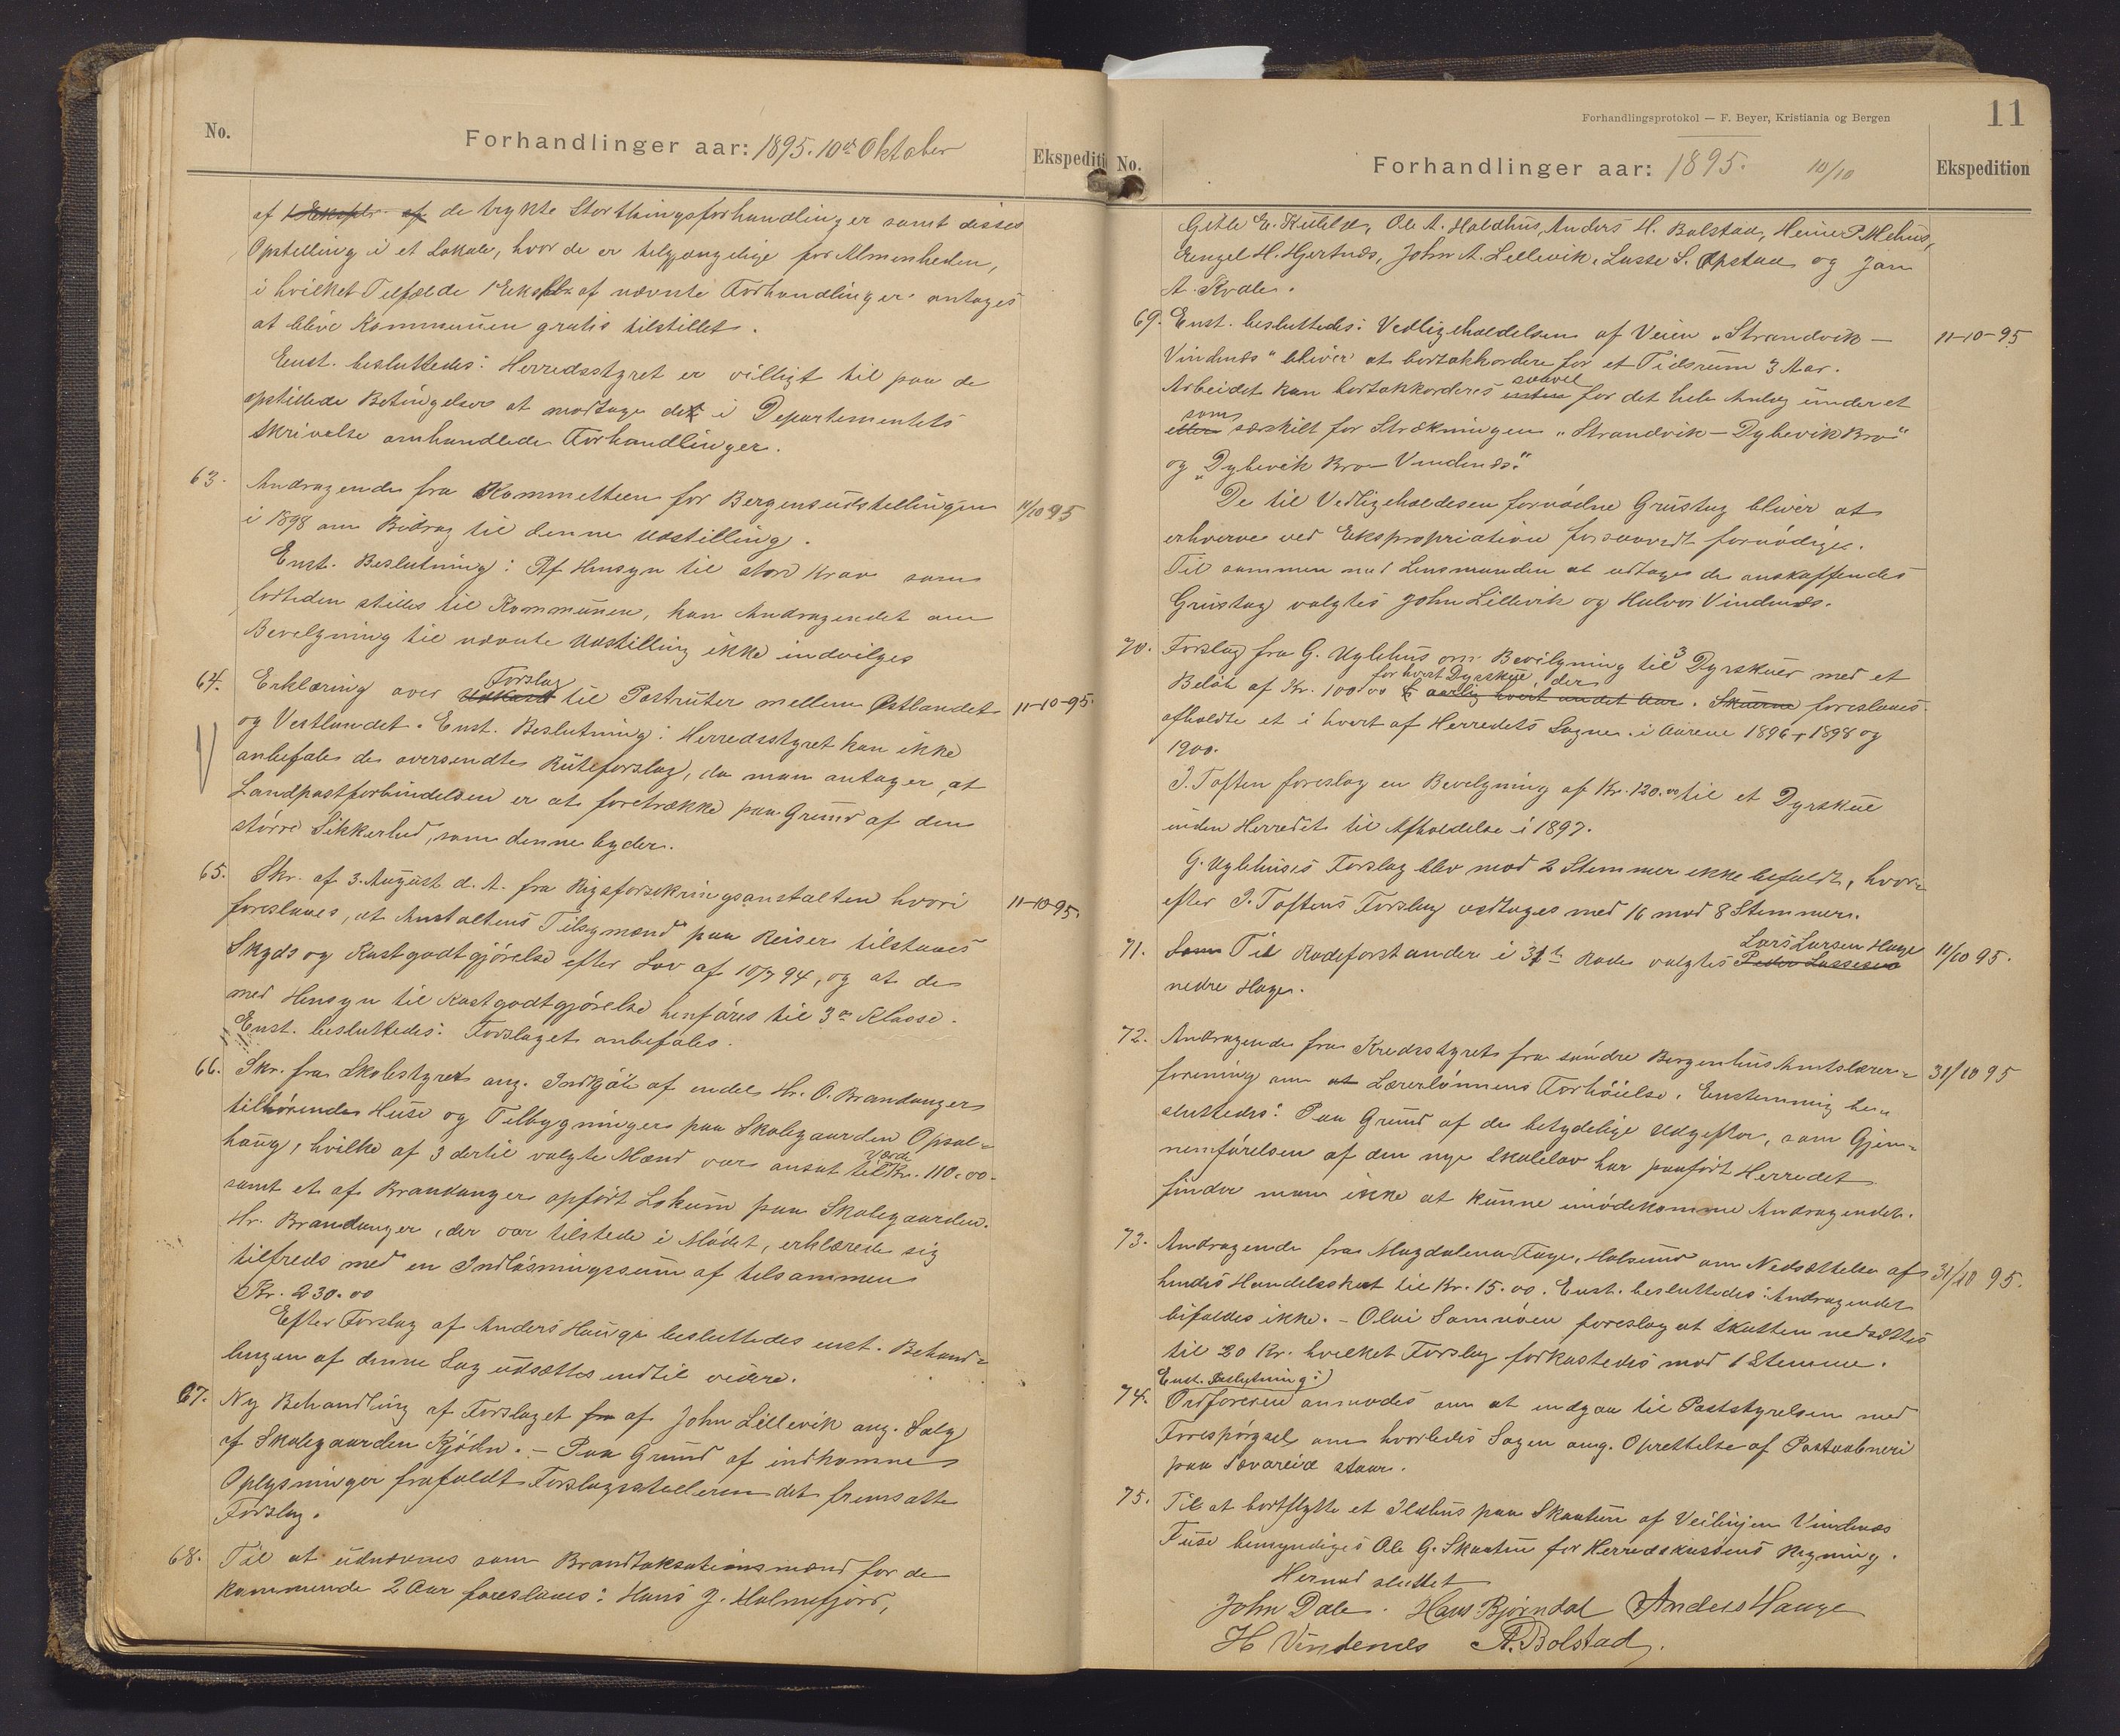 No.
Forhandlinger aar: 1895. 10de Oktober
Ekspediti
af 1 Exempl. af de trykte Storthingsforhandlinger samt disses
Opstilling i et Lokale, hvor de er tilgjængelige for Almenheden,
i hvilket Tilfælde 1 Exspl. af nævnte Forhandlinger antages
at blive Kommunen gratis tilstillet.
Enst. besluttedes: Herredsstyret er villigt til paa de
opstillede Betingelser at modtage de i Departementets
Skrivelse omhandlede Forhandlinger.
63. Andragende fra Kommetteen for Bergensudstillingen 11/10 95
i 1898 om Bidrag til denne Udstilling.
Enst. Beslutning: Af Hensyn til store Krav som
fortiden stilles til Kommunen, kan Andragendet om
Bevilgning til nævnte Udstilling ikke indvilges
64. Erklæring over Udkast Forslag til Postruter mellem Østlandet 11-10-95.
og Vestlandet. Enst. Beslutning: Herredsstyret kan ikke
anbefale de oversendte Ruteforslag, da man antager, at
Landpostforbindelsen er at foretrække paa Grund af den
større Sikkerhed, som denne byder.
65. Skr. af 3. August d. A. fra Rigsforsikringsanstalten hvori 11-10-95.
foreslaaes, at Anstaltens Tilsynsmænd paa Reiser tilstaaes
Skyds og Kostgodtgjörelse efter Lov af 10/7 94, og at de
med Hensyn til Kostgodtgjörelse henføres til 3die Klasse.
Enst. besluttedes: Forslaget anbefales.
66. Skr. fra Skolestyret ang. Indkjöb af endel Hr. O. Brandanger
tilhørende Huse og Tilbygninger paa Skolegaarden Opsal=
haug, hvilke af 3 dertil valgte Mænd var ansat til værde Kr. 110.00.
samt et af Brandanger opført Lokum paa Skolegaarden.
Hr. Brandanger, der var tilstede i Mødet, erklærede sig
tilfreds med en Indløsningssum af tilsammen
Kr. 230.00
Efter Forslag af Anders Hauge besluttedes enst. Behand=
lingen af denne Sag udsættes indtil videre.
67. Ny Behandling af Forslaget fra af John Lillevik ang. Salg
af Skolegaarden Kjöden. - Paa Grund af indkomne
Oplysninger frafaldt Forslagsstilleren det fremsatte
Forslag.
68. Til at udnævnes som Brandtaksationsmænd for de
kommende 2 Aar foreslaaes: Hans J. Holmefjord,
Forhandlingsprotokol — F. Beyer, Kristiania og Bergen
11
No.
Forhandlinger aar: 1895. 10/10
Ekspedition
Gitle E. Kilild, Ole A. Holdhus, Anders H. Bolstad, Heine P. Mehus,
Engel H. Hjertnæs, John A. Lillevik, Lasse S. Opstad og Jan
A. Kvale.
69. Enst. besluttedes: Vedligeholdelsen af Veien "Strandvik — 11-10-95
Vindenæs" bliver at bortakkordere for et Tidsrum 3 Aar.
Arbeidet kan bortakkorderes enten saavel for det hele Anlæg under et
eller som særskilt for Strækningen "Strandvik — Dybevik Bro"
og "Dybevik Bro — Vindenæs."
De til Vedligeholdesen fornødne Grustag bliver at
erhverve ved Ekspropriation forsaavidt fornødiges.
Til sammen med Lensmanden at udtage de anskaffendes
Grustag valgtes John Lillevik og Halvor Vindenæs.
70. Forslag fra G. Uglehus om Bevilgning til 3 Dyrskuer med et
Beløb af Kr. 100.00 for hvert Dyrskue, der aarlig hvert andet Aar. Skuerne foreslaaes
afholdte et i hvert af Herredets Sogne i Aarene 1896, 1898 og
1900.
J. Toften foreslog en Bevilgning af Kr. 120.00 til et Dyrskue
inden Herredet til Afholdelse i 1897.
G. Uglehuses Forslag blev mod 2 Stemmer ikke bifaldt, hvor=
efter J. Toftens Forslag vedtoges med 16 mod 8 Stemmer.
71. Som Til Rodeforstander i 31te Rode valgtes Peder Lassesen Lars Larsen Hauge 11/10 95.
nedre Hauge.
72. Andragende fra Kredsstyret fra søndre Bergenhus Amtslærer= 31/10 95
forening om at Lærerlønnens Forhöielse. Enstemmig be=
sluttedes: Paa Grund af de betydelige Udgifter, som Gjen=
nemførelsen af den nye Skolelov har paaført Herredet
finder man ikke at kunne imødekomme Andragendet.
73. Andragende fra Magdalena Fage, Holsund om Nedsættelse af 31/10 95.
hendes Handelsskat til Kr. 15.00. Enst. besluttedes: Andragendet
bifaldes ikke. - Olai Samnöen foreslog at Skatten nedsættes
til 20 Kr. hvilket Forslag forkastedes mod 1 Stemme.
Enst. Beslutning:
74. Ordføreren anmodes om at indgaa til Poststyrelsen med
Forespørgsel om hvorledes Sagen ang. Oprettelse af Postaabneri
paa Sævareid staar.
75. Til at bortflytte et Ildhus paa Skaatun af Veilinjen Vindenæs
Fuse bemyndiges Ole G. Skaatun for Herredskassens Regning.
Hermed sluttet
John Dale. Hans Bjørndal Anders Hauge
H Vindenes A. Bolstad.